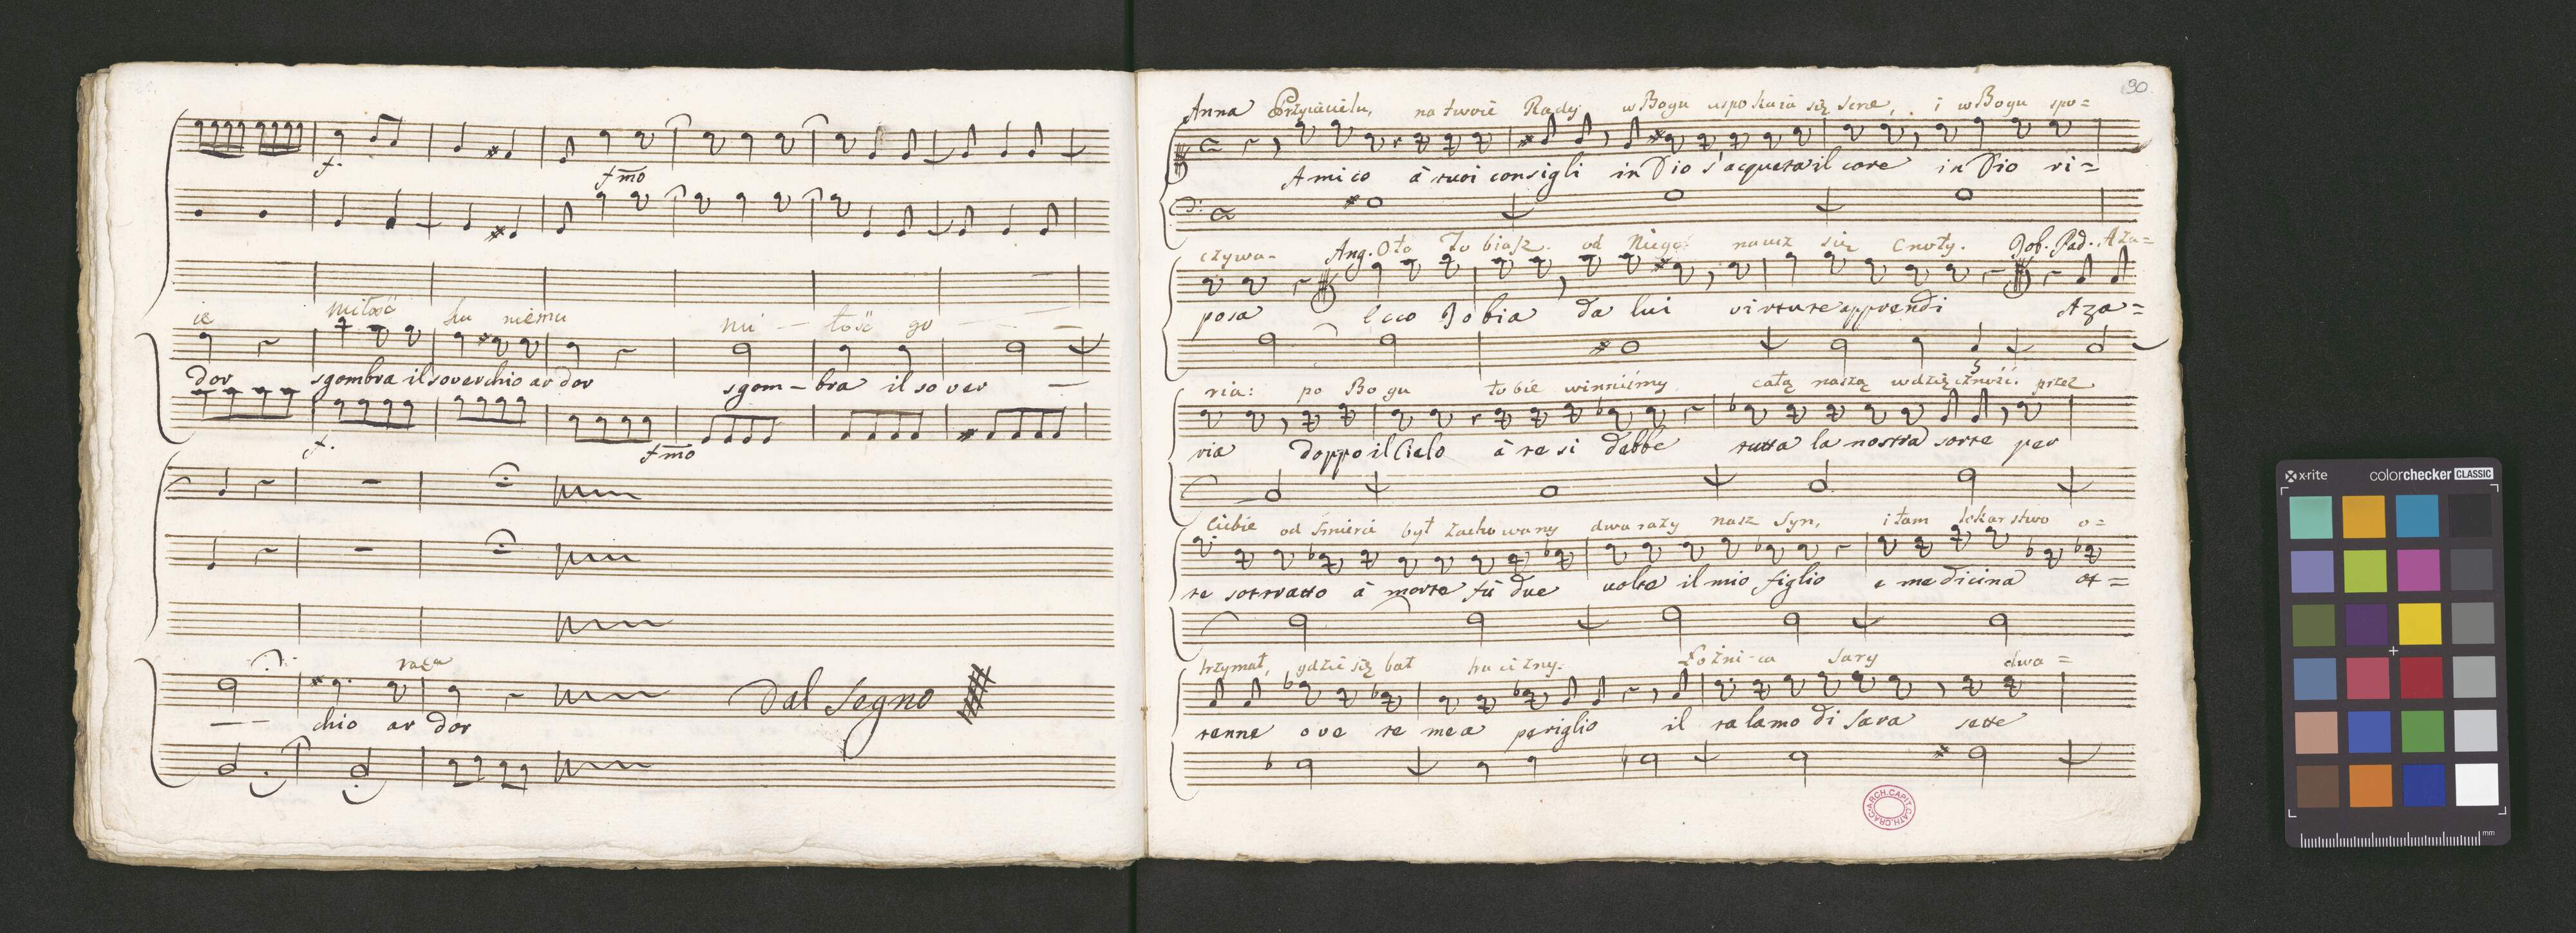 f.
fmo
ie miłość ku niemu mi – łość go
dor sgombra il soverchio ar dor sgom – bra il so ver —
f. fmo
raza
Dal Segno
— — chio ar dor
30
Anna Przyiacielu, na twoie Rady w Bogu uspokaia się serce, i w Bogu spo=
Amico à tuoi consigli in Dio s'acqueta il core in Dio ri=
czywa- Ang. Oto Tobiasz od Niego naucz się Cnoty. Tob. Pad. Aza=
posa Ecco Tobia da lui virture apprendi Aza=
ria: po Bogu tobie winniśmy całą naszą wdzięczność. przez
ria doppo il Cielo à te si debbe tutta la nostra sorte per
Ciebie od śmierci był zachowany dwa razy nasz Syn, i tam lekarstwo o=
te sottratto à morte fù due volte il mio figlio e medicina ot=
trzymał, gdzie się bał trucizny. Łożni-ca Sary dwa=
tenne ove te mea periglio il talamo di Sara sette
ARCH.CAPIT.CATH.CRAC.
x-rite colorchecker CLASSIC
mm